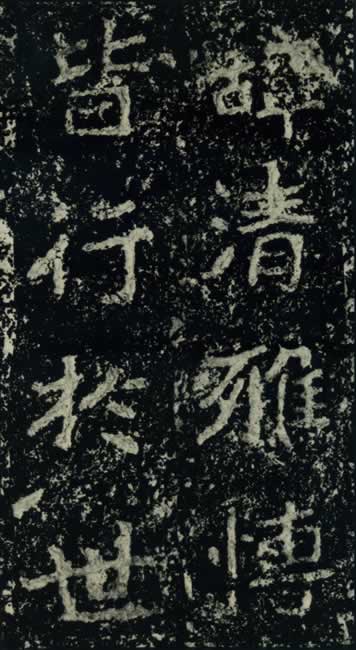 辭清雅愽
皆行於世